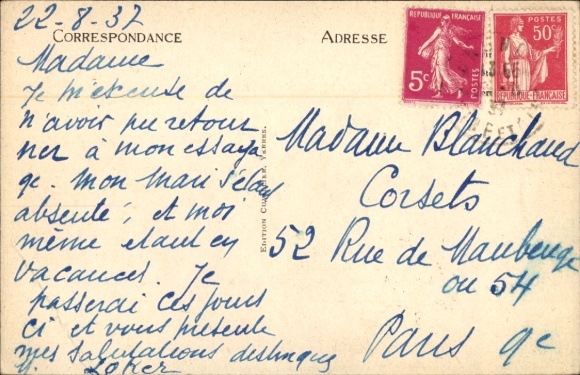 22-8-37
CORRESPONDANCE
ADRESSE
RÉPUBLIQUE FRANÇAISE
5c
POSTES
POSTES
50c
RÉPUBLIQUE FRANÇAISE
Madame
Je m'excuse de
n'avoir pu retour
ner à mon essaya
ge. mon mari s'étant
absenté, et moi
même étant en
vacances. Je
passerai ces jours
ci et vous présente
mes salutations distingués
Madame Blanchaud
Corsets
52 Rue de Maubeuge
ou 54
Paris 9e